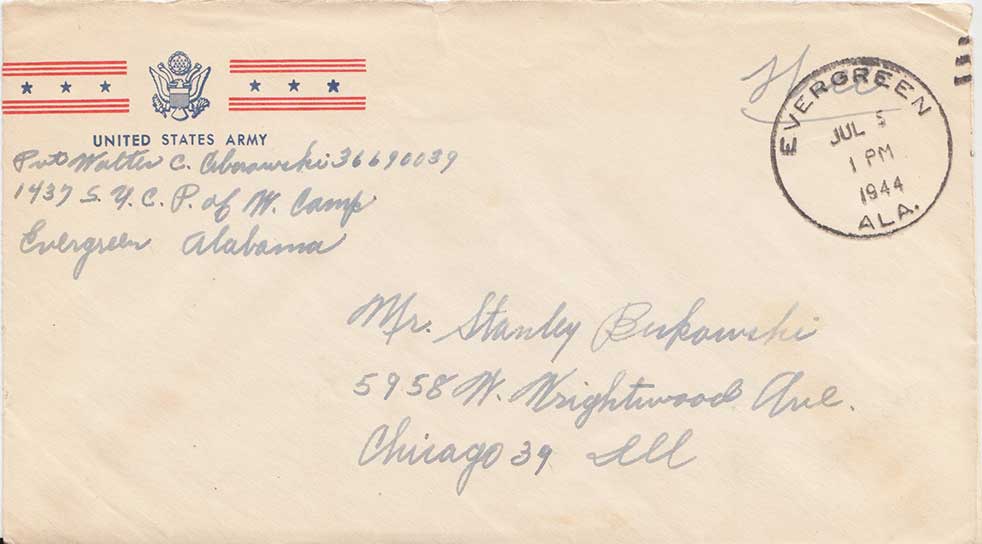 UNITED STATES ARMY
Pvt Walter C. 36690039
1437 S. U. C. P. of W. Camp
Evergreen Alabama
Free
EVERGREEN
JUL 5
1 PM
1944
ALA.
Mr. Stanley Bukowski
5958 W. Wrightwood Ave.
Chicago 39 Ill